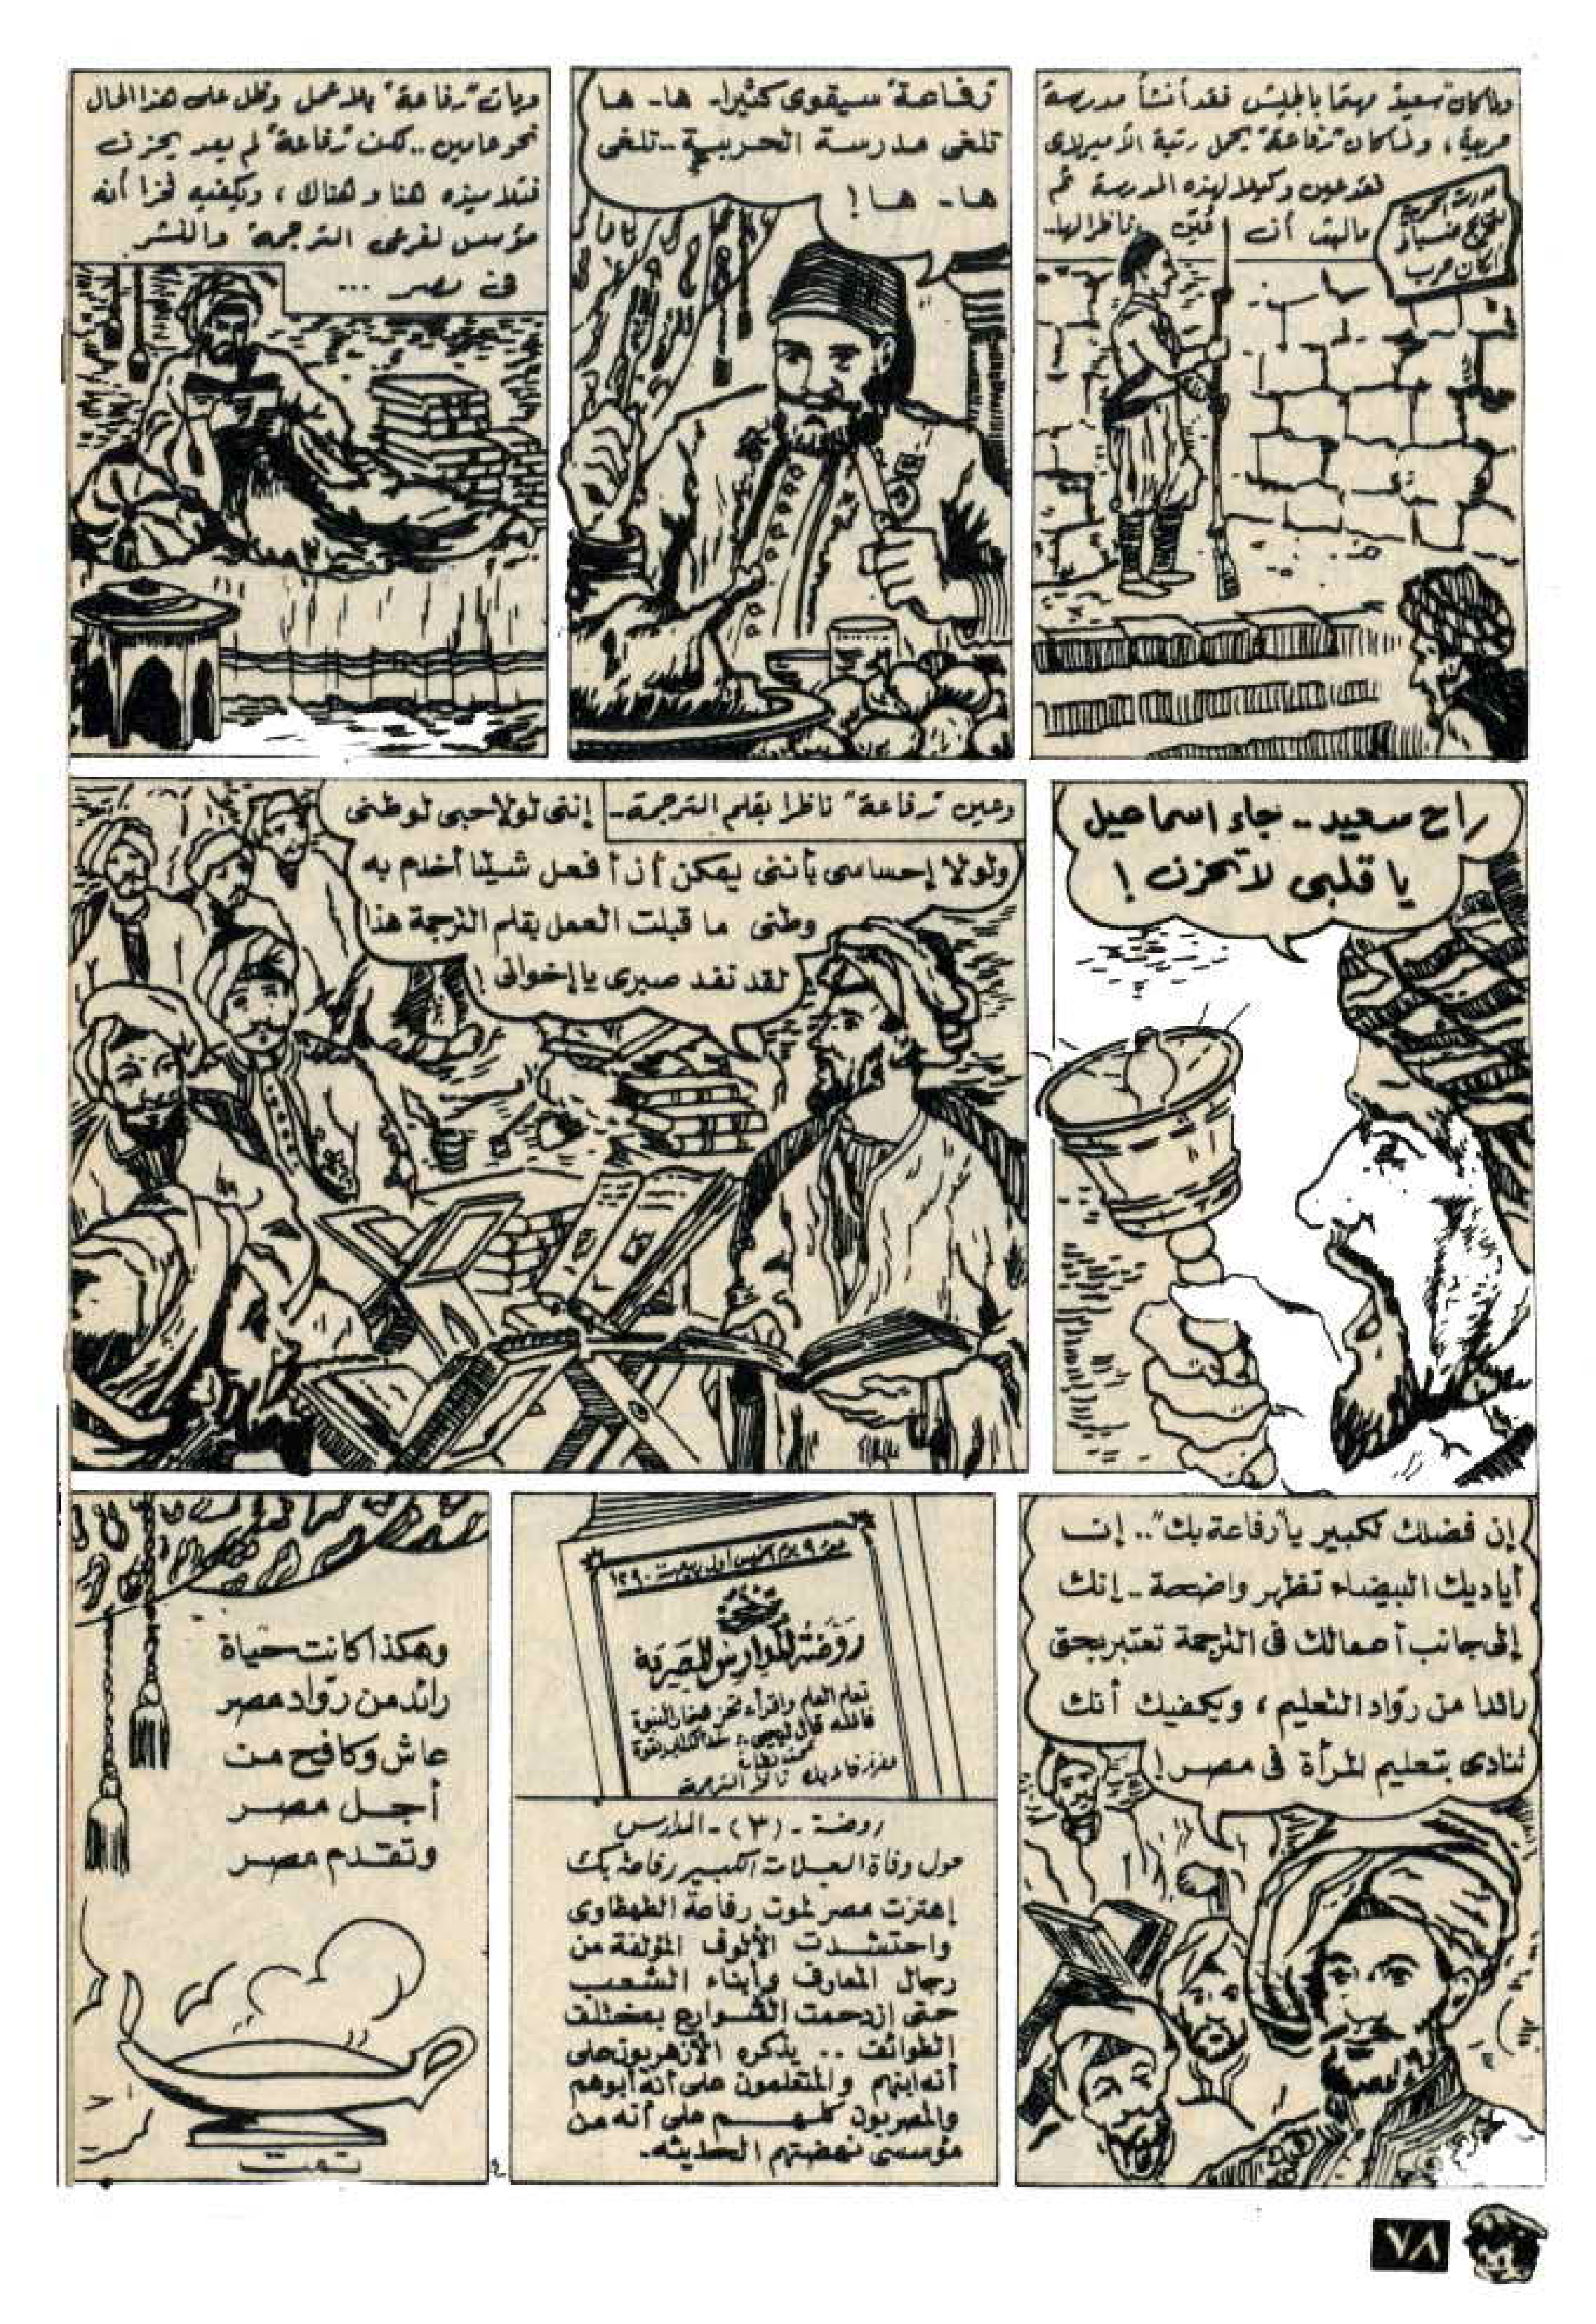 ولما كان "سعيد" مهتما بالجيش فقد أنشأ مدرسة
حربية ، ولما كان "رفاعة" يحمل رتبة الأميرالاى
لقد عين وكيلا لهذه المدرسة ثم
مالبث أن عين ناظرا لها..
مدرسة الحربية
أركان حرب
رفاعة سيقوى كثيرا.. ها.. ها
تلغى مدرسة الحربية.. تلغى
ها.. ها !
وبات "رفاعة" بلا عمل وظل على هذا الحال
نحو عامين .. لكن "رفاعة" لم يعد يحزن
فتلاميذه هنا وهناك ، ويكفيه فخرا أنه
مؤسس لفرعى الترجمة والنشر
فى مصر ...
راح سعيد .. جاء اسماعيل
يا قلبى لا تحزن !
وعين "رفاعة" ناظرا بقلم الترجمة..
إننى لولا حبى لوطنى
ولولا إحساسى بأننى يمكن أن أفعل شيئا أخدم به
وطنى ما قبلت العمل بقلم الترجمة هذا
لقد نفد صبرى يا إخوانى !
إن فضلك لكبير يا "رفاعة بك" .. إن
أياديك البيضاء تظهر واضحة .. إنك
إلى جانب أعمالك فى الترجمة تعتبر بحق
رائدا من رواد التعليم ، ويكفيك أنك
تنادى بتعليم المرأة فى مصر !
١٢٩٠
روضة المدارس المصرية
تعلم العلم واقرأ تحز فخار النبوة
فالله قال ليحيى خذ الكتاب بقوة
ناظر الترجمة
روضة - (٣) - المدارس
حول وفاة العلامة الكبير رفاعة بك
إهتزت مصر لموت رفاعة الطهطاوى
واحتشدت الألوف المؤلفة من
رجال المعارف وأبناء الشعب
حتى ازدحمت الشوارع بمختلف
الطوائف .. يذكره الأزهريون على
أنه ابنهم والمتعلمون على أنه أبوهم
والمصريون كلهم على أنه من
مؤسسى نهضتهم الحديثه.
وهكذا كانت حياة
رائد من رواد مصر
عاش وكافح من
أجل مصر
وتقدم مصر
تمت
٧٨